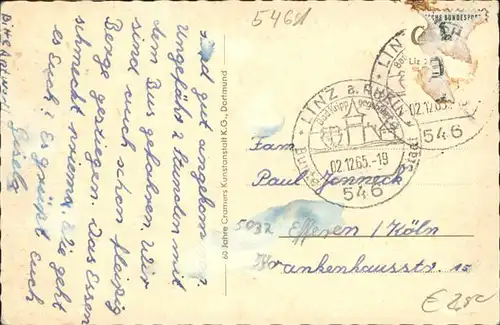 5461
sind gut angekommen.
Ungefähr 2 Stunden mit
dem Bus gefahren. Wir
sind auch schon fleißig
Berge gestiegen. Das Essen
schmeckt prima. Wie geht
es Euch? Es grüßt Euch
Gisela
Bitte
60 Jahre Cramers Kunstanstalt K.G., Dortmund
DEUTSCHE BUNDESPOST
LINZ a. RHEIN
02.12.65.-19
546
LINZ a. RHEIN
Bunte Stadt
02.12.65.-19
546
Fam
Paul Jenneck
5032 Efferen / Köln
Krankenhausstr. 15
€ 2,80